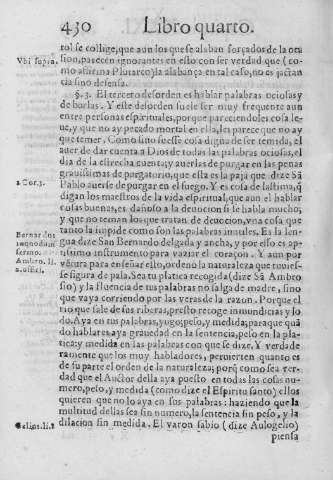 430 Libro quarto.
tol se collige, que aun los que se alaban forçados de la oca
Vbi supra. sion, parecen ignorantes en esto con ser verdad que (co-
mo afirma Plutarco) la alabança en tal caso, no es jactan
cia sino defensa.
§. 3. El tercero desorden es hablar palabras ociosas y
de burlas. Y este desorden suele ser muy frequente aun
entre personas espirituales, porque pareciendoles cosa le-
ue, y que no ay pecado mortal en ella, les parece que no ay
que temer. Como si fuesse cosa digna de ser temida, el
auer de dar cuenta a Dios de todas las palabras ociosas, el
dia de la estrecha cuenta, y auerlas de purgar en las penas
grauissimas de purgatorio, que esta es la paja que dize Sã
1 Cor. 3. Pablo auerse de purgar en el fuego. Y es cosa de lastima, q̃
digan los maestros de la vida espiritual, que aun el hablar
cosas buenas, es dañoso a la deuocion si se habla mucho,
y que no teman los que tratan de deuocion, vna cosa que
tanto la impide como son las palabras inutiles. Es la len-
Bernardus gua dize San Bernardo delgada y ancha, y por esso es ap-
in quodam tissimo instrumento para vaziar el coraçon. Y aun por
sermo. ventura para enseñar esto, ordeno la naturaleza que tuuies-
Ambro. li. se figura de pala. Sea tu platica recogida (dize Sã Ambro-
1. offici. sio) y la fluencia de tus palabras no salga de madre, sino
que vaya corriendo por las veras de la razon. Porque el
rio que sale de sus riberas, presto recoge inmundicias y lo
do. Aya en tus palabras, yugo, peso, y medida; para que quã
do hablares aya grauedad en la sentencia, peso en la pla-
tica; y medida en las palabras con que se dize, Y verdade
ramente que los muy habladores, peruierten quanto es
de su parte el orden de la naturaleza; porq̃ como sea ver-
dad que el Auctor della aya puesto en todas las cosas nu-
mero, peso, y medida (como dize el Espiritu santo) ellos
quieren que no lo aya en sus palabras: haziendo que la
multitud dellas sea sin numero, la sentencia sin peso, y la
dilacion sin medida. El varon sabio (dize Aulogelio)
piensa